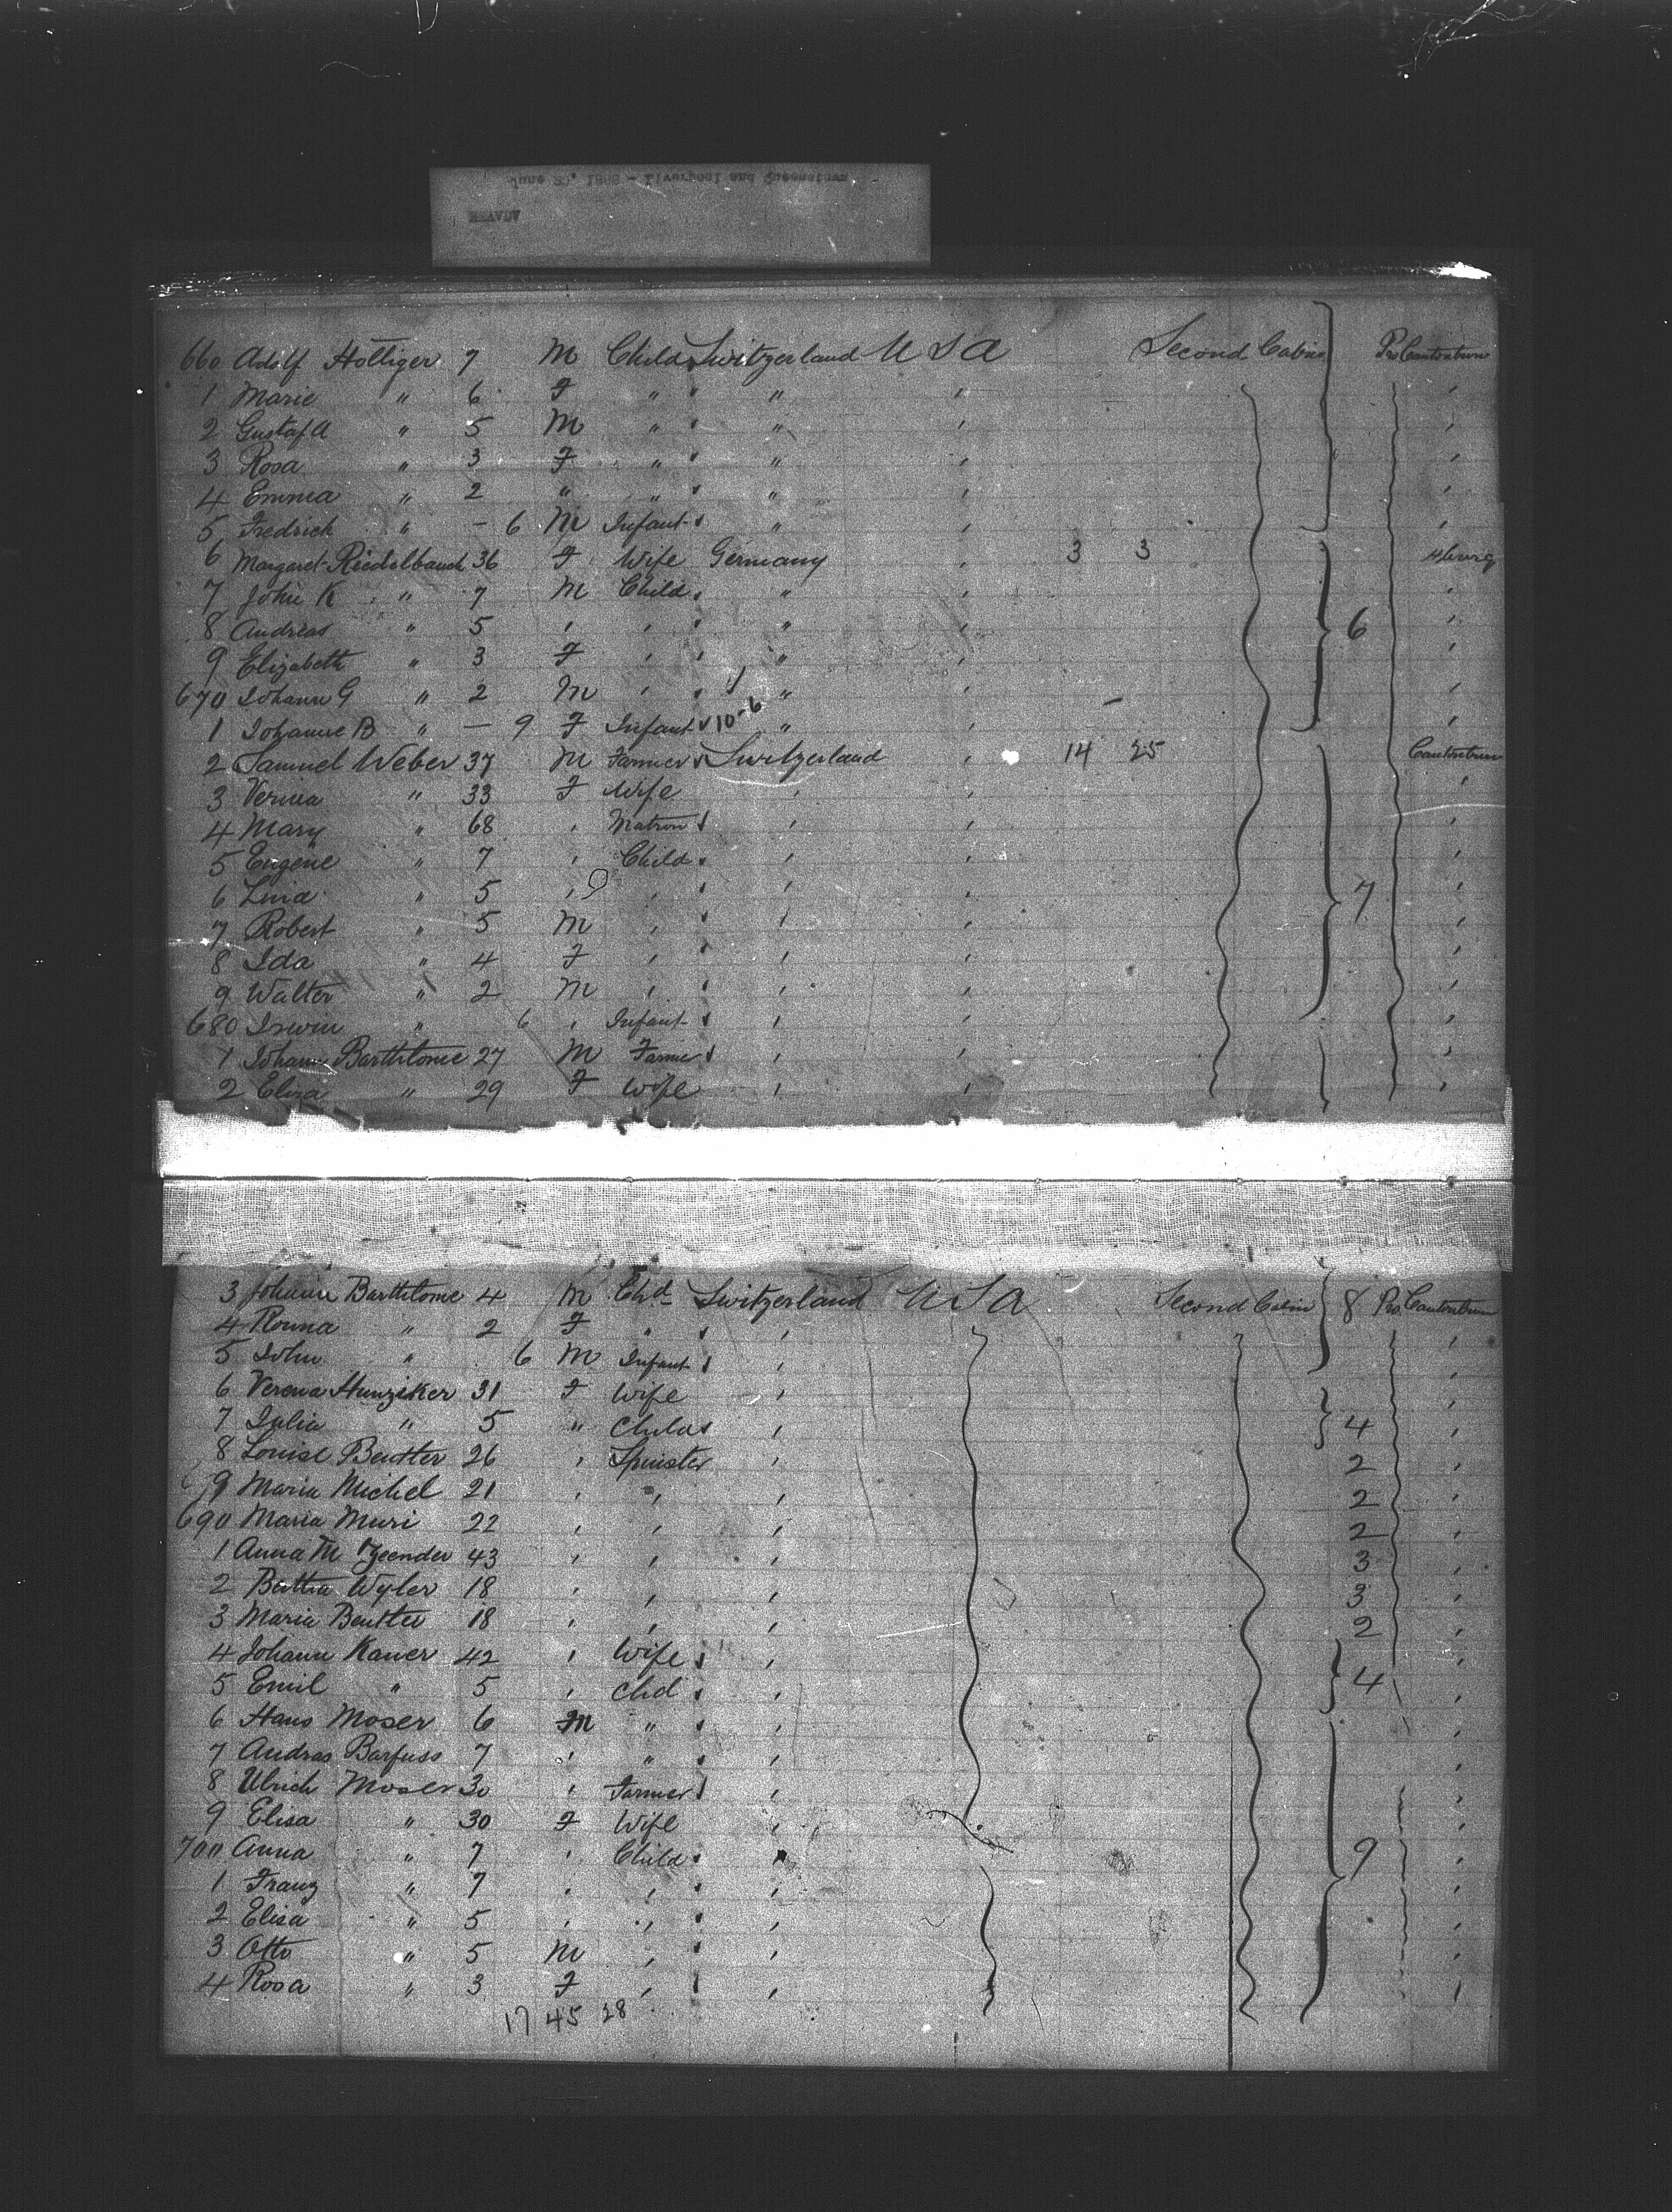 June 30, 1892 - Liverpool and Queenstown
660 Adolf Holliger 7 M Child Switzerland U S A Second Cabin Pro Cantontown
1 Marie " 6 F " " '
2 Gustaf A " 5 M " " '
3 Rosa " 3 F " " '
4 Emma " 2 " " " '
5 Fredrick " - 6 M Infant " '
6 Margaret Riedelbauch 36 F Wife Germany ' 3 3
7 John K " 7 M Child " '
8 Andreas " 5 ' ' " ' 6
9 Elizabeth " 3 F ' " '
670 Johann G " 2 M ' " '
1 Johanne B " - 9 F Infant 10-6 " '
2 Samuel Weber 37 M Farmer Switzerland ' 14 25
3 Verena " 33 F Wife ' '
4 Mary " 68 ' Matron ' '
5 Eugene " 7 ' Child ' '
6 Lina " 5 ' ' ' '
7 Robert " 5 M ' ' ' 7
8 Ida " 4 F ' ' '
9 Walter " 2 M ' ' '
680 Irwin " 6 ' Infant ' '
1 Johann Barthlome 27 M Farmer ' '
2 Eliza " 29 F Wife ' '
3 Johann Barthlome 4 M Chd Switzerland U S A Second Cabin 8 Pro
4 " 2 F " ' '
5 John " 6 M Infant ' '
6 Verena Hunziker 31 F Wife ' '
7 Julia " 5 " Child ' 4 '
8 Louise Beutter 26 ' Spinster ' 2 '
9 Maria Michel 21 ' " ' 2 '
690 Maria Muri 22 ' ' ' 2 '
1 Anna M Zeender 43 ' ' ' 3 '
2 Bertha Wyler 18 ' ' ' 3 '
3 Maria Beutter 18 ' ' ' 2 '
4 Johann 42 ' Wife ' '
5 Emil " 5 ' Chd ' 4 '
6 Hans Moser 6 M " ' '
7 Andras Barfuss 7 ' " ' '
8 Ulrich Moser 30 ' Farmer ' '
9 Elisa " 30 F Wife ' '
700 Anna " 7 ' Child ' 9 '
1 Franz " 7 ' ' ' '
2 Elisa " 5 ' ' ' '
3 Otto " 5 M ' ' '
4 Rosa " 3 F ' ' '
17 45 28